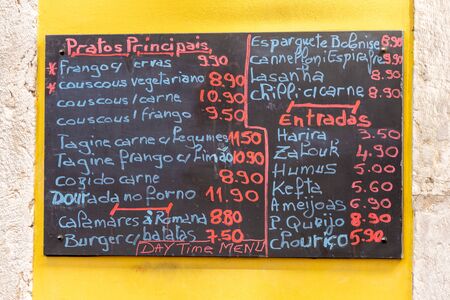 Pratos Principais
* Frango c/ ervas 9.90
* couscous vegetariano 8.90
couscous c/carne 10.90
couscous c/ frango 9.50
Tagine carne c/Legumes 11.50
Tagine frango c/ Limão 10.90
Cozido carne 8.90
Dourada no Forno 11.90
Calamares à Romana 8.80
Burger c/ batatas 7.50
DAY Time MENU
Esparguete Bolonise 8.90
Cannelloni Espinafre 9.90
Lasanha 8.90
Chilli c/carne 8.90
Entradas
Harira 3.50
Zalouk 4.90
Humus 5.00
Kefta 5.60
Ameijoas 6.90
P. Queijo 8.90
Chouriço 5.90